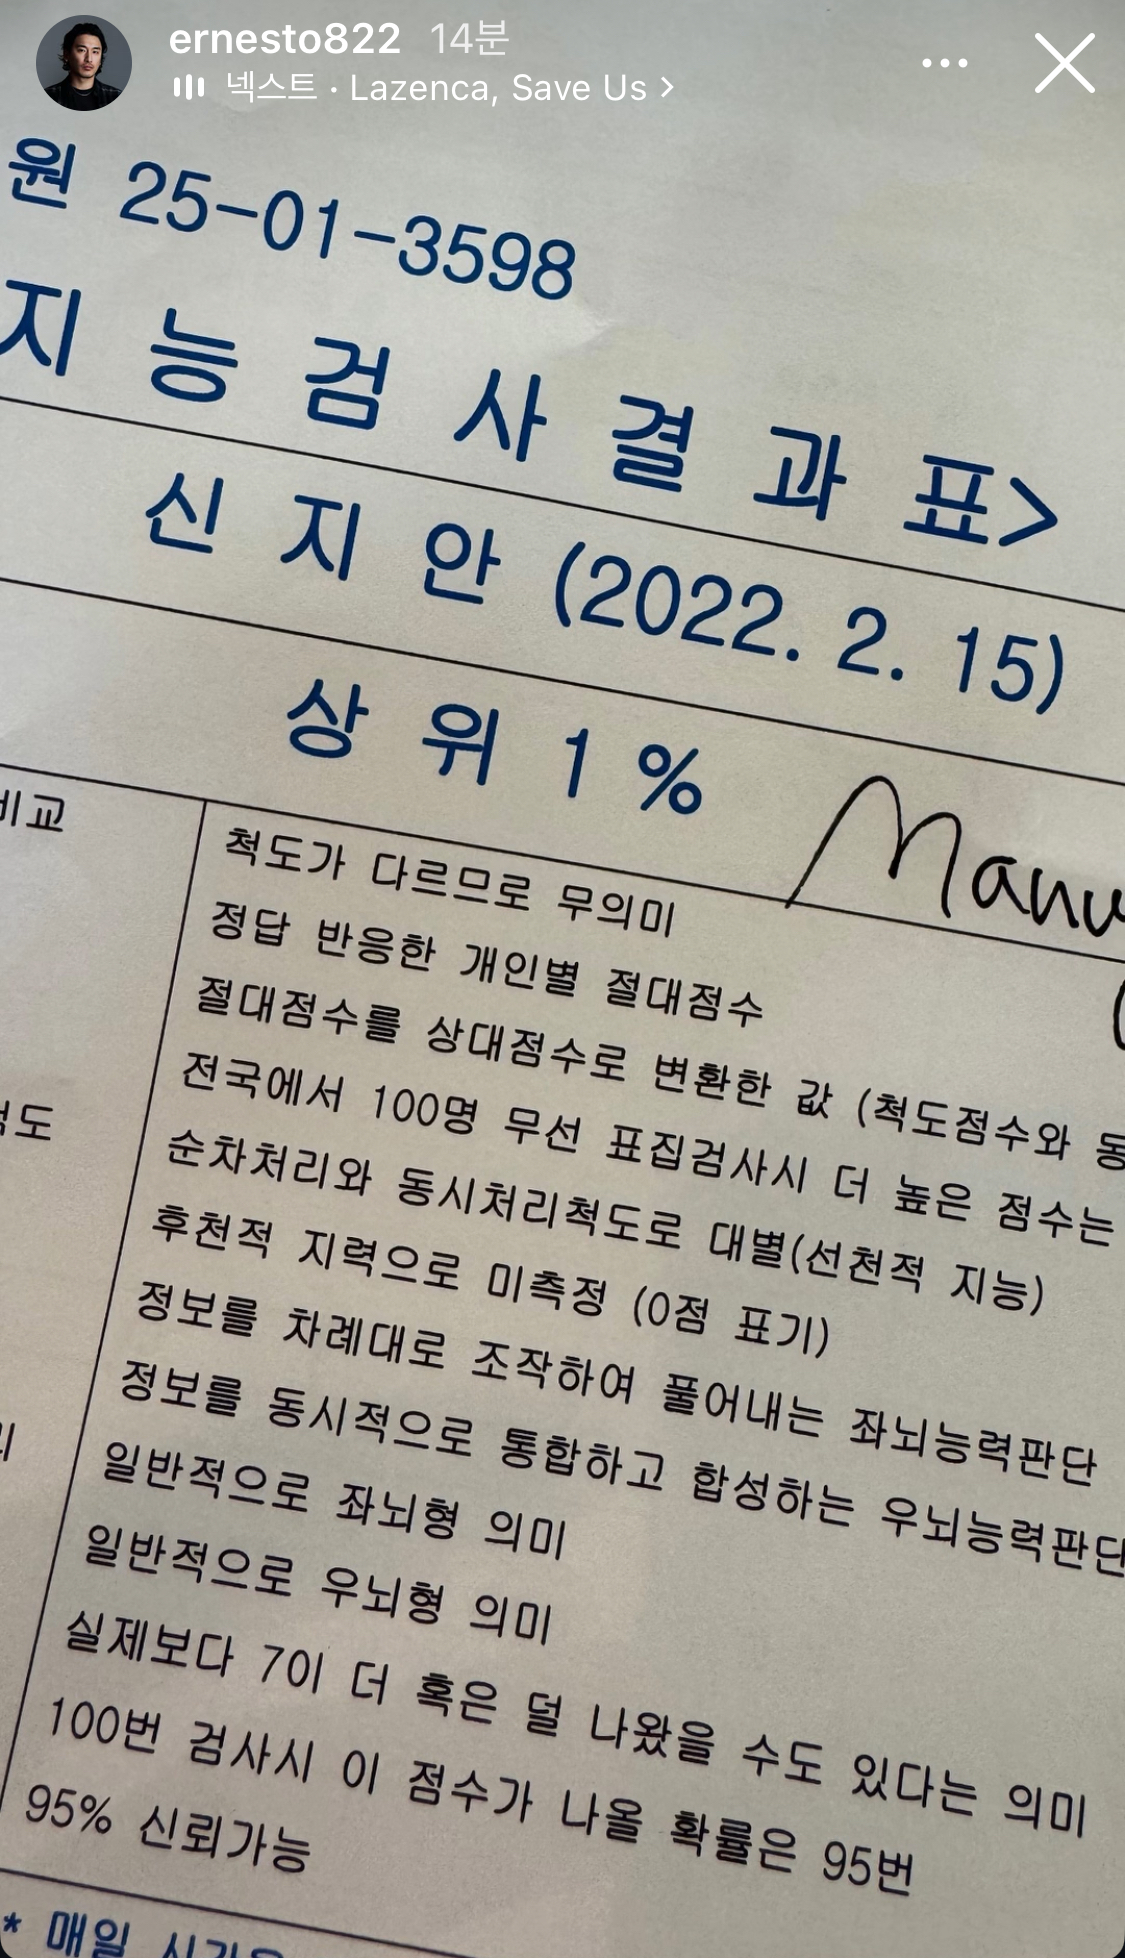 ernesto822 14분
넥스트 · Lazenca, Save Us >
원 25-01-3598
지 능 검 사 결 과 표>
신 지 안 (2022. 2. 15)
상 위 1 %
비교
척도가 다르므로 무의미
정답 반응한 개인별 절대점수
절대점수를 상대점수로 변환한 값 (척도점수와
전국에서 100명 무선 표집검사시 더 높은 점수는
순차처리와 동시처리척도로 대별(선천적 지능)
후천적 지력으로 미측정 (0점 표기)
정보를 차례대로 조작하여 풀어내는 좌뇌능력판단
정보를 동시적으로 통합하고 합성하는 우뇌능력판단
일반적으로 좌뇌형 의미
일반적으로 우뇌형 의미
실제보다 7이 더 혹은 덜 나왔을 수도 있다는 의미
100번 검사시 이 점수가 나올 확률은 95번
95% 신뢰가능
* 매일